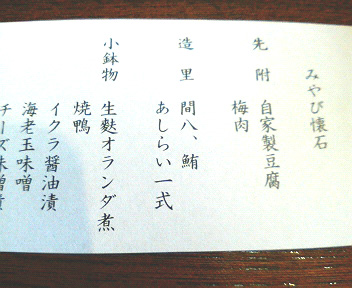 みやび懐石
先附 自家製豆腐
梅肉
造里 間八、鮪
あしらい一式
小鉢物 生麩オランダ煮
焼鴨
イクラ醤油漬
海老玉味噌
チーズ味噌漬